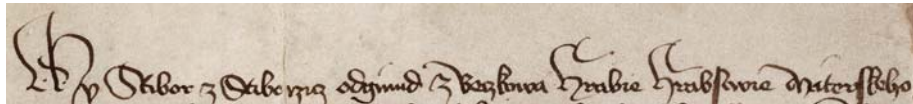 My Stibor z Stiborzicz odginud z Beczkowa Hrabie Hrabstwie Niterskeho